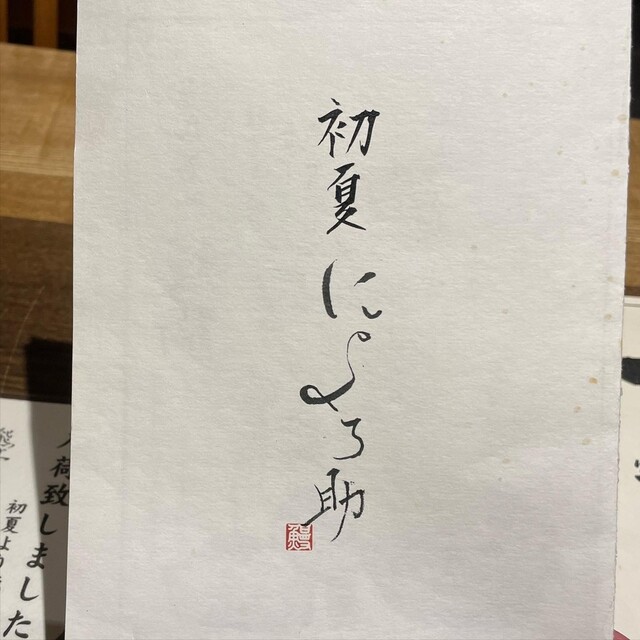 初夏
によろ助
鰻
入荷致しました
初夏より